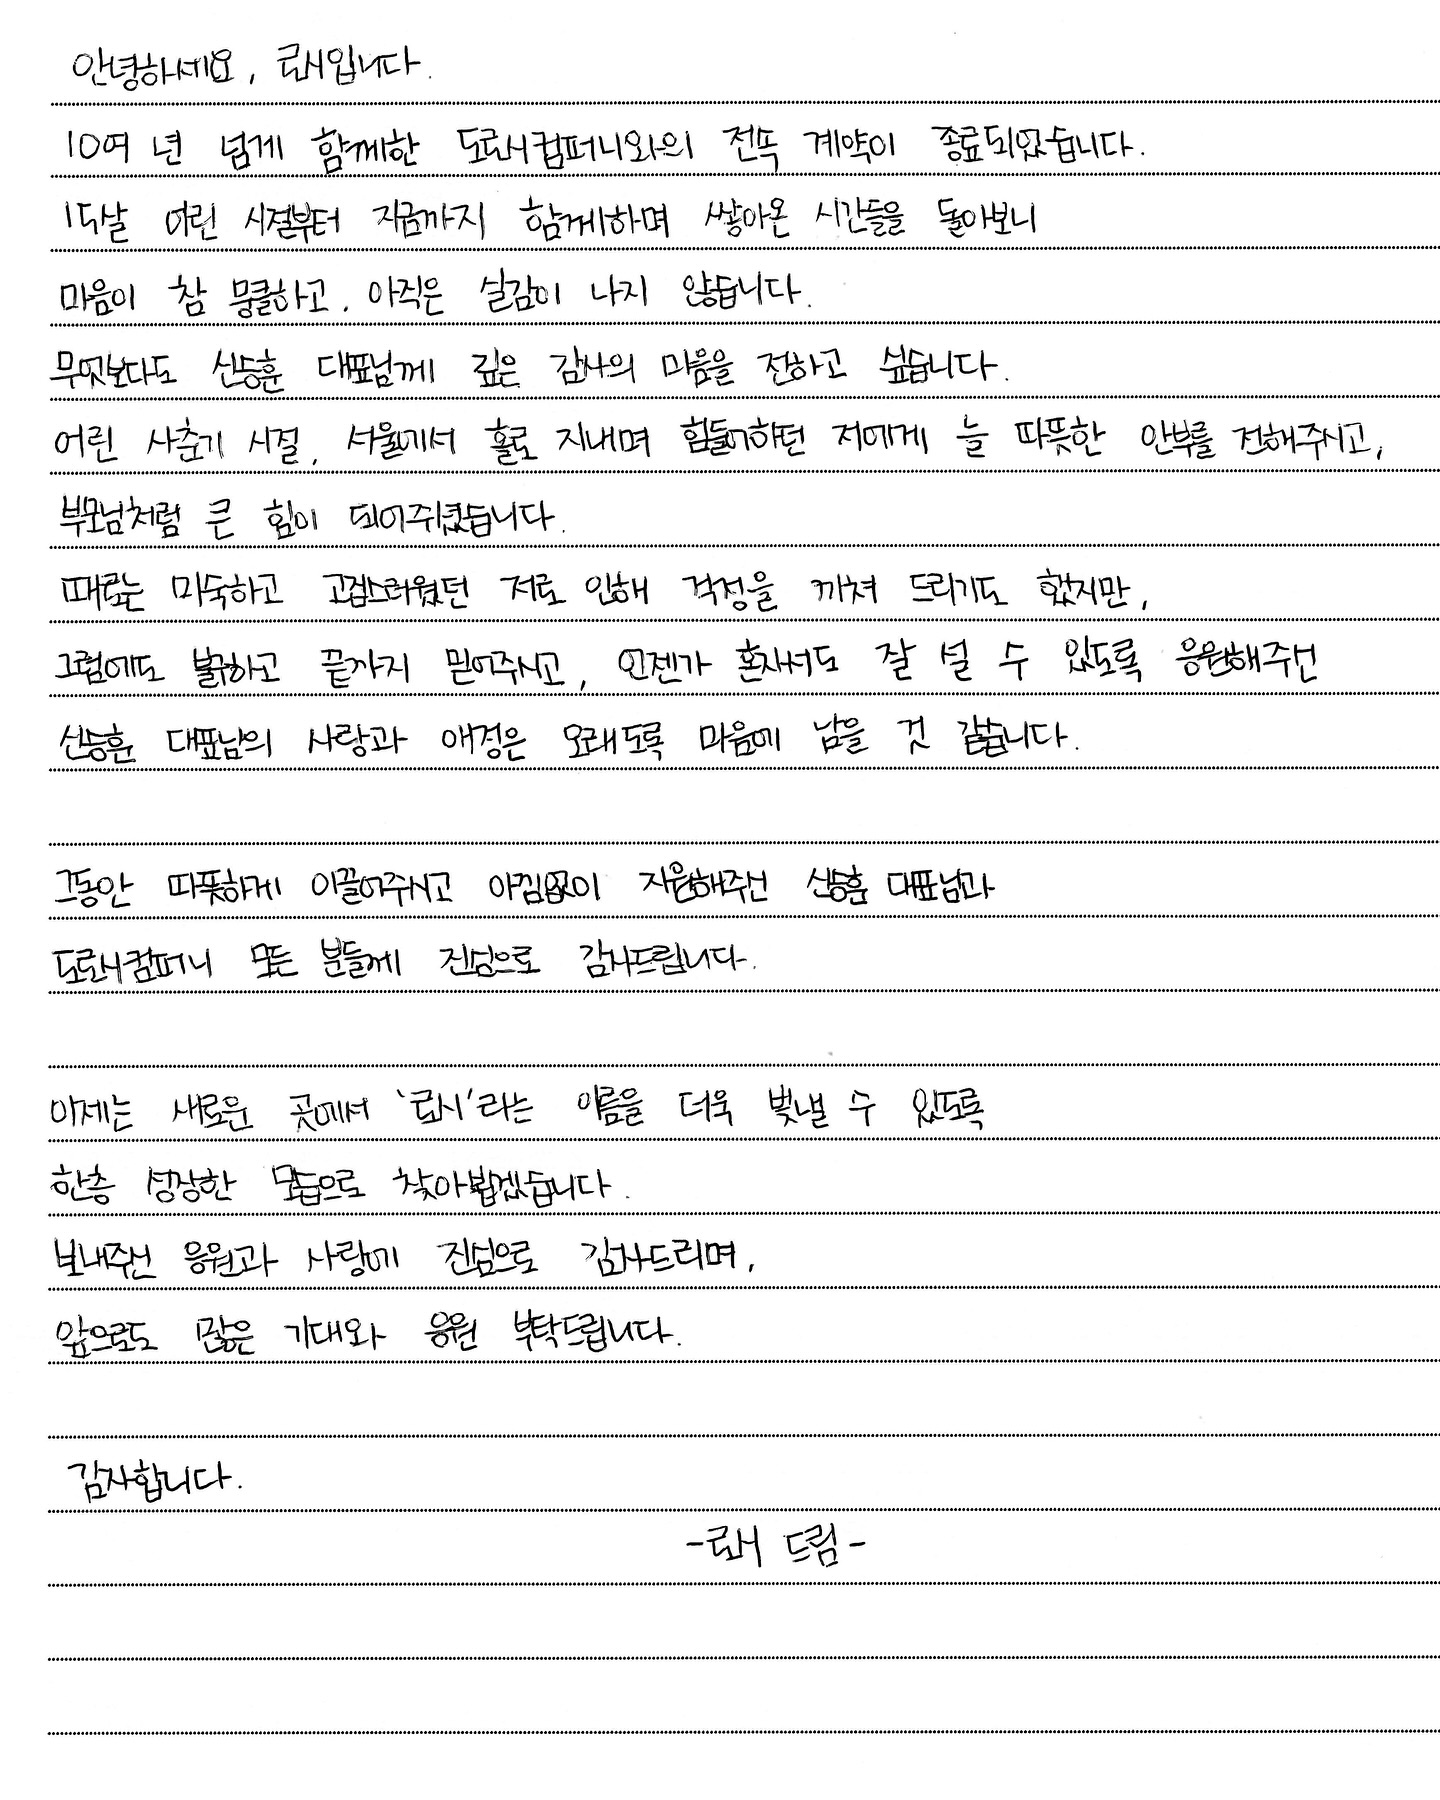 안녕하세요, 로시입니다.
10여 년 넘게 함께한 도로시컴퍼니와의 전속 계약이 종료되었습니다.
15살 어린 시절부터 지금까지 함께하며 쌓아온 시간들을 돌아보니
마음이 참 뭉클하고, 아직은 실감이 나지 않습니다.
무엇보다도 신승훈 대표님께 깊은 감사의 마음을 전하고 싶습니다.
어린 사춘기 시절, 서울에서 홀로 지내며 힘들어하던 저에게 늘 따뜻한 안부를 전해주시고,
부모님처럼 큰 힘이 되어주셨습니다.
때로는 미숙하고 고집스러웠던 저로 인해 걱정을 끼쳐 드리기도 했지만,
그럼에도 붉하고 끝까지 믿어주시고, 언젠가 혼자서도 잘 설 수 있도록 응원해주신
신승훈 대표님의 사랑과 애정은 오래도록 마음에 남을 것 같습니다.
그동안 따뜻하게 이끌어주시고 아낌없이 지원해주신 신승훈 대표님과
도로시컴퍼니 모든 분들께 진심으로 감사드립니다.
이제는 새로운 곳에서 '로시'라는 이름을 더욱 빛낼 수 있도록
한층 성장한 모습으로 찾아뵙겠습니다.
보내주신 응원과 사랑에 진심으로 감사드리며,
앞으로도 많은 기대와 응원 부탁드립니다.
감사합니다.
-로시 드림-